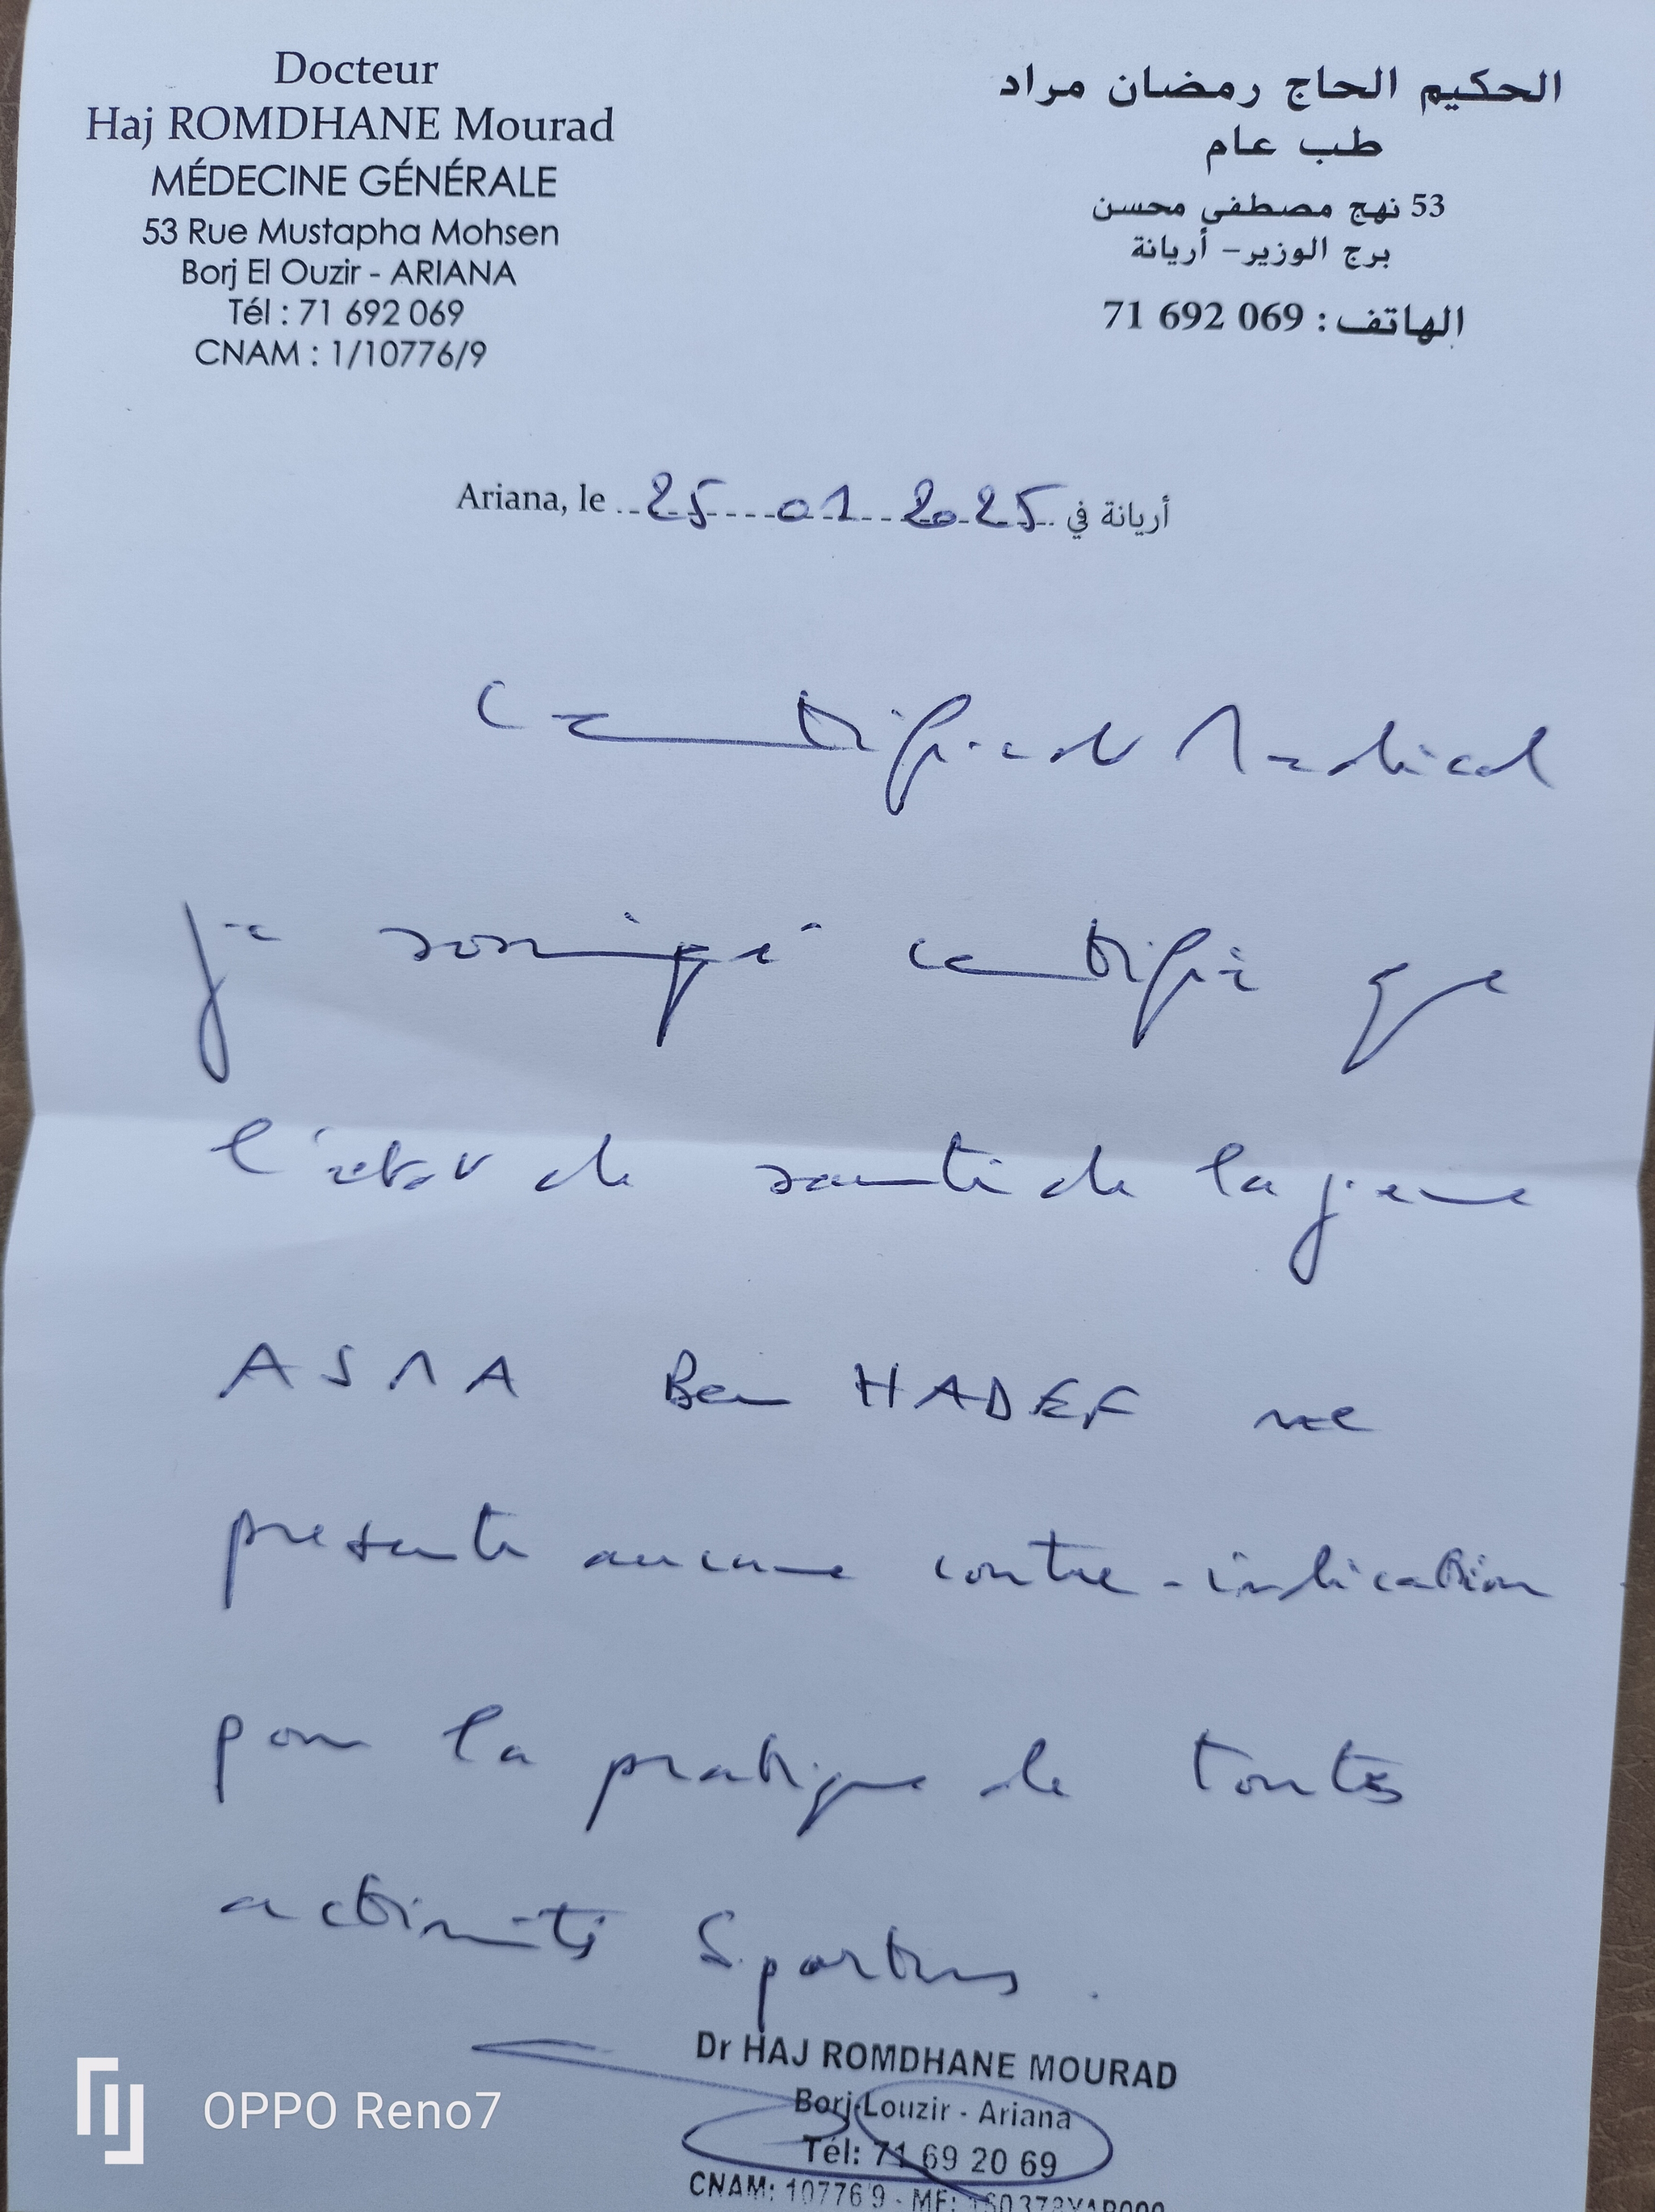 Docteur
Haj ROMDHANE Mourad
MÉDECINE GÉNÉRALE
53 Rue Mustapha Mohsen
Borj El Ouzir - ARIANA
Tél : 71 692 069
CNAM : 1/10776/9
الحكيم الحاج رمضان مراد
طب عام
53 نهج مصطفى محسن
برج الوزير - أريانة
الهاتف : 71 692 069
Ariana, le 25 01 2025 أريانة في
Certificat Medical
je soussigné certifie que
l'état de santé de la jeune
ASMA Ben HADEF ne
presente aucune contre-indication
pour la pratique de toutes
activités Sportives.
Dr HAJ ROMDHANE MOURAD
Borj Louzir - Ariana
Tél: 71 69 20 69
CNAM: 10776/9 - MF:
OPPO Reno7